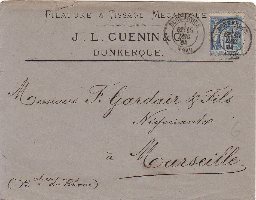 FILATURE & TISSAGE MÉCANIQUE
J. L. GUENIN &
DUNKERQUE.
Messieurs F. Gardair & Fils
Négociants
à Marseille
(Bouches du Rhône)